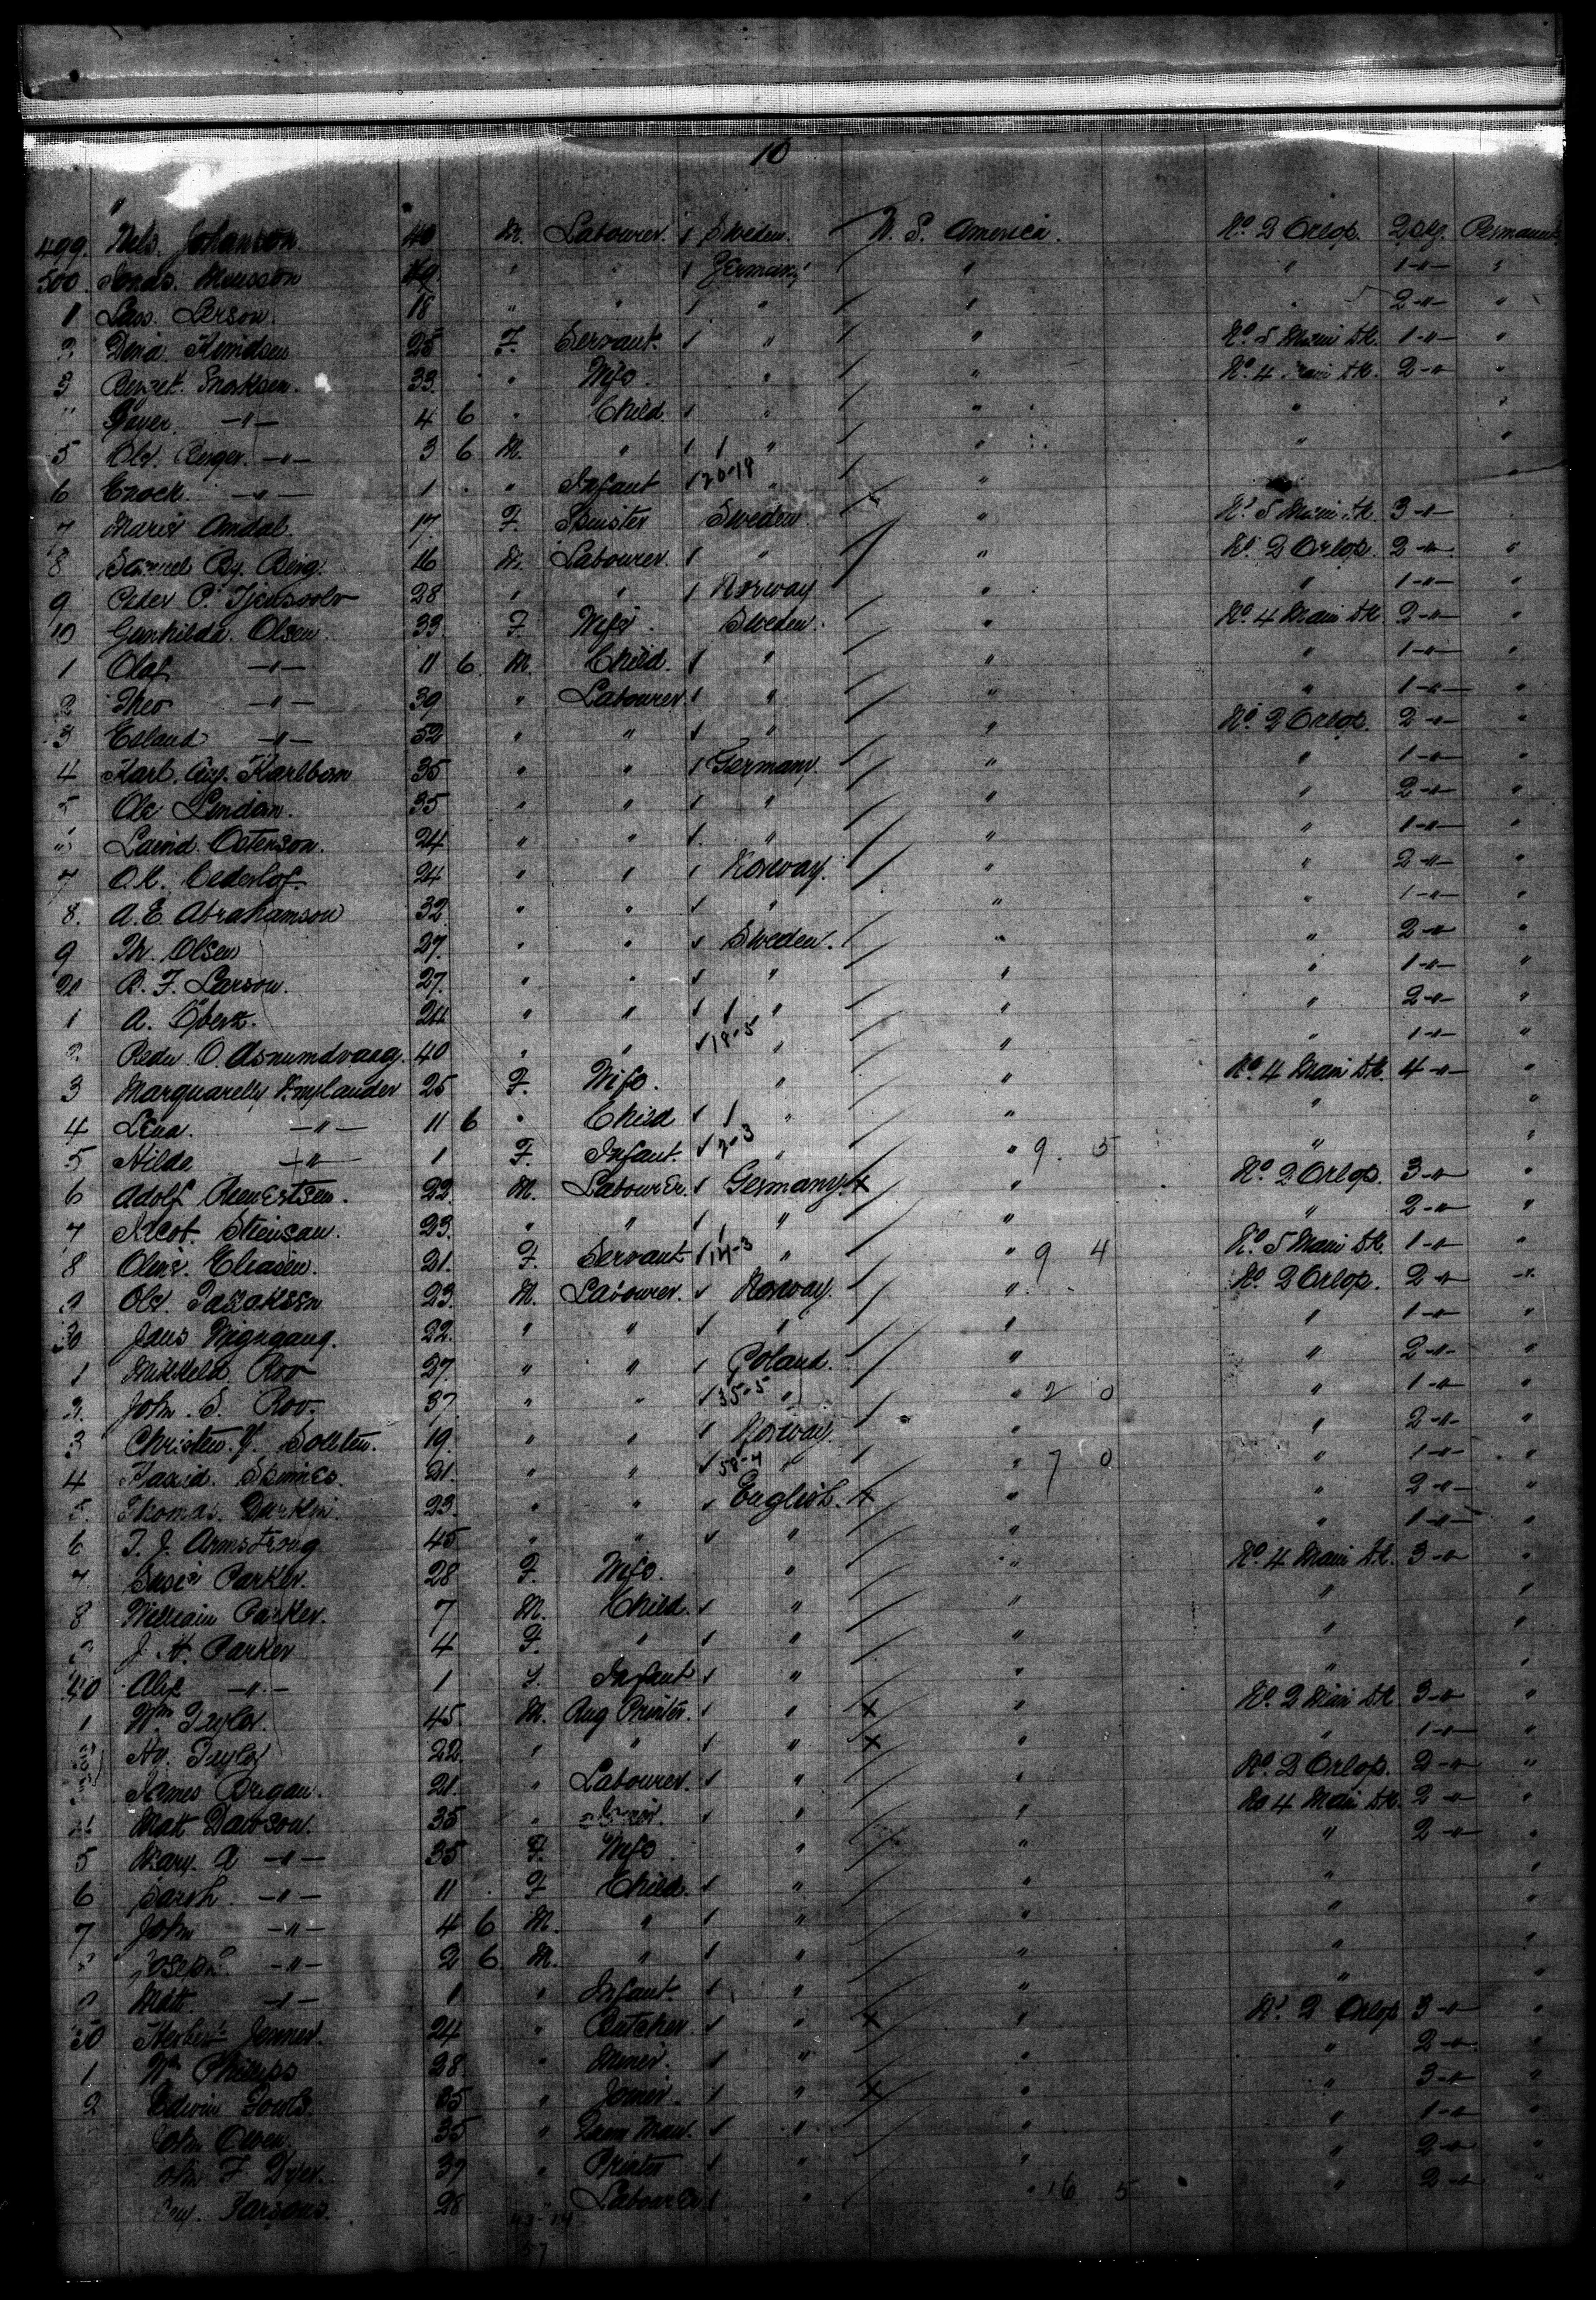 10
499. Nels. Johanson 40 M. Labourer. Sweden. U. S. America. No. 2 Orlop. 2 Pkg. Permanent
500. Jonas. Monsson 49. " " Germany " " 1 -"- "
1 Lars. Larson. 18 " " " " " 2 -"- "
2 Dina. 25 F. Servant. " " No. 5 Main Dk. 1 -"- "
3 33. " Wife. " " No. 4 Main Dk. 2 -"- "
" -"- 4 6 " Child. " " " "
5 Ole. -"- 3 6 M. " " " " "
6 Enock. -"- 1 " Infant 20-18 " " "
7 Marie Amdal. 17. F. Spinster Sweden. " No. 5 Main Dk. 3 -"-
8 Samuel By. Berg. 16 M. Labourer. " " No. 2 Orlop. 2 -"- "
9 Peder P. 28 " " Norway " " 1 -"- "
10 Gunhilda Olsen. 33. F. Wife. Sweden. " No. 4 Main Dk. 2 -"- "
1 Olaf -"- 11 6 M. Child. " " " 1 -"- "
2 Theo -"- 39 " Labourer " " " 1 -"- "
3 Erland -"- 52 " " " " No. 2 Orlop. 2 -"- "
4 Karl. Aug. Karlbom 35 " " Germany. " " 1 -"- "
5 Ole Lindan. 35 " " " " " 2 -"- "
6 Osterson. 24 " " " " " 1 -"- "
7 Cederlof. 24 " " Norway. " " 2 -"- "
8. A. E. Abrahamson 32 " " " " " 1 -"- "
9 Th. Olsen 27. " " Sweden. " " 2 -"- "
20 B. F. Larson. 27. " " " " " 1 -"- "
1 A. Oberz. 24 " " " " " 2 -"- "
2 Peder O. Asmundvaag. 40 " " 18-5 " " " 1 -"- "
3 25 F. Wife. " " No. 4 Main Dk. 4 -"- "
4 Lena. -"- 11 6 " Child " " " "
5 Hilda -"- 1 F. Infant. 2-3 " " 9. 5 " "
6 Adolf 22. M. Labourer. Germany. X " No. 2 Orlop. 3 -"- "
7 23. " " " " " 2 -"- "
8 Eliasen. 21. F. Servant 14-3 " " 9 4 No. 5 Main Dk. 1 -"- "
9 Ole. Isaaksen 23. M. Labourer. Norway. " No. 2 Orlop. 2 -"- "
30 Jens 22. " " " " " 1 -"- "
1 Mikkeld. Rov 27. " " Poland. " " 2 -"- "
2. John. S. Rov. 37. " " 35-5 " " 2 0 " 1 -"- "
3 Christen. 19. " " Norway. " " 2 -"- "
4 21. " " 58-4 " " 7 0 " 1 -"- "
5. Thomas. Durkin. 23. " " English. X " " 2 -"- "
6 T. J. Armstrong 45 " " " " " 1 -"- "
7 Susie Parker. 28 F. Wife. " " No. 4 Main Dk. 3 -"- "
8 William Parker. 7 M. Child. " " " "
9 J. H. Parker 4 F. " " " " "
40 Alf. -"- 1 " Infant " " " "
1 Wm. Taylor. 45 M. Rug Printer. " X " No. 2 Main Dk. 3 -"- "
2 Hy. Taylor 22. " " " X " " 1 -"- "
3 James Organ. 21. " Labourer. " " No. 2 Orlop. 2 -"- "
4 Matt Dawson. 35 " Miner. " " No 4 Main Dk. 2 -"- "
5 Mary. A -"- 35 F. Wife. " " " 2 -"- "
6 Sarah. -"- 11 F Child. " " " "
7 John -"- 4 6 M. " " " " "
8 Joseph -"- 2 6 M. " " " " "
9 Matt. -"- 1 " Infant. " " " "
50 Herbert Jenner. 24 " Butcher. " X " No. 2 Orlop 3 -"- "
1 Wm. Phillips 28. " Miner. " " " 2 -"- "
2 Edwin 35 " Joiner. " X " " 3 -"- "
John Owen. 35 " Farm Man. " " " 1 -"- "
John F. Dyer. 37 " Printer " " " 2 -"- "
Parsons. 28 " Labourer " " 16 5 " 2 -"- "
57